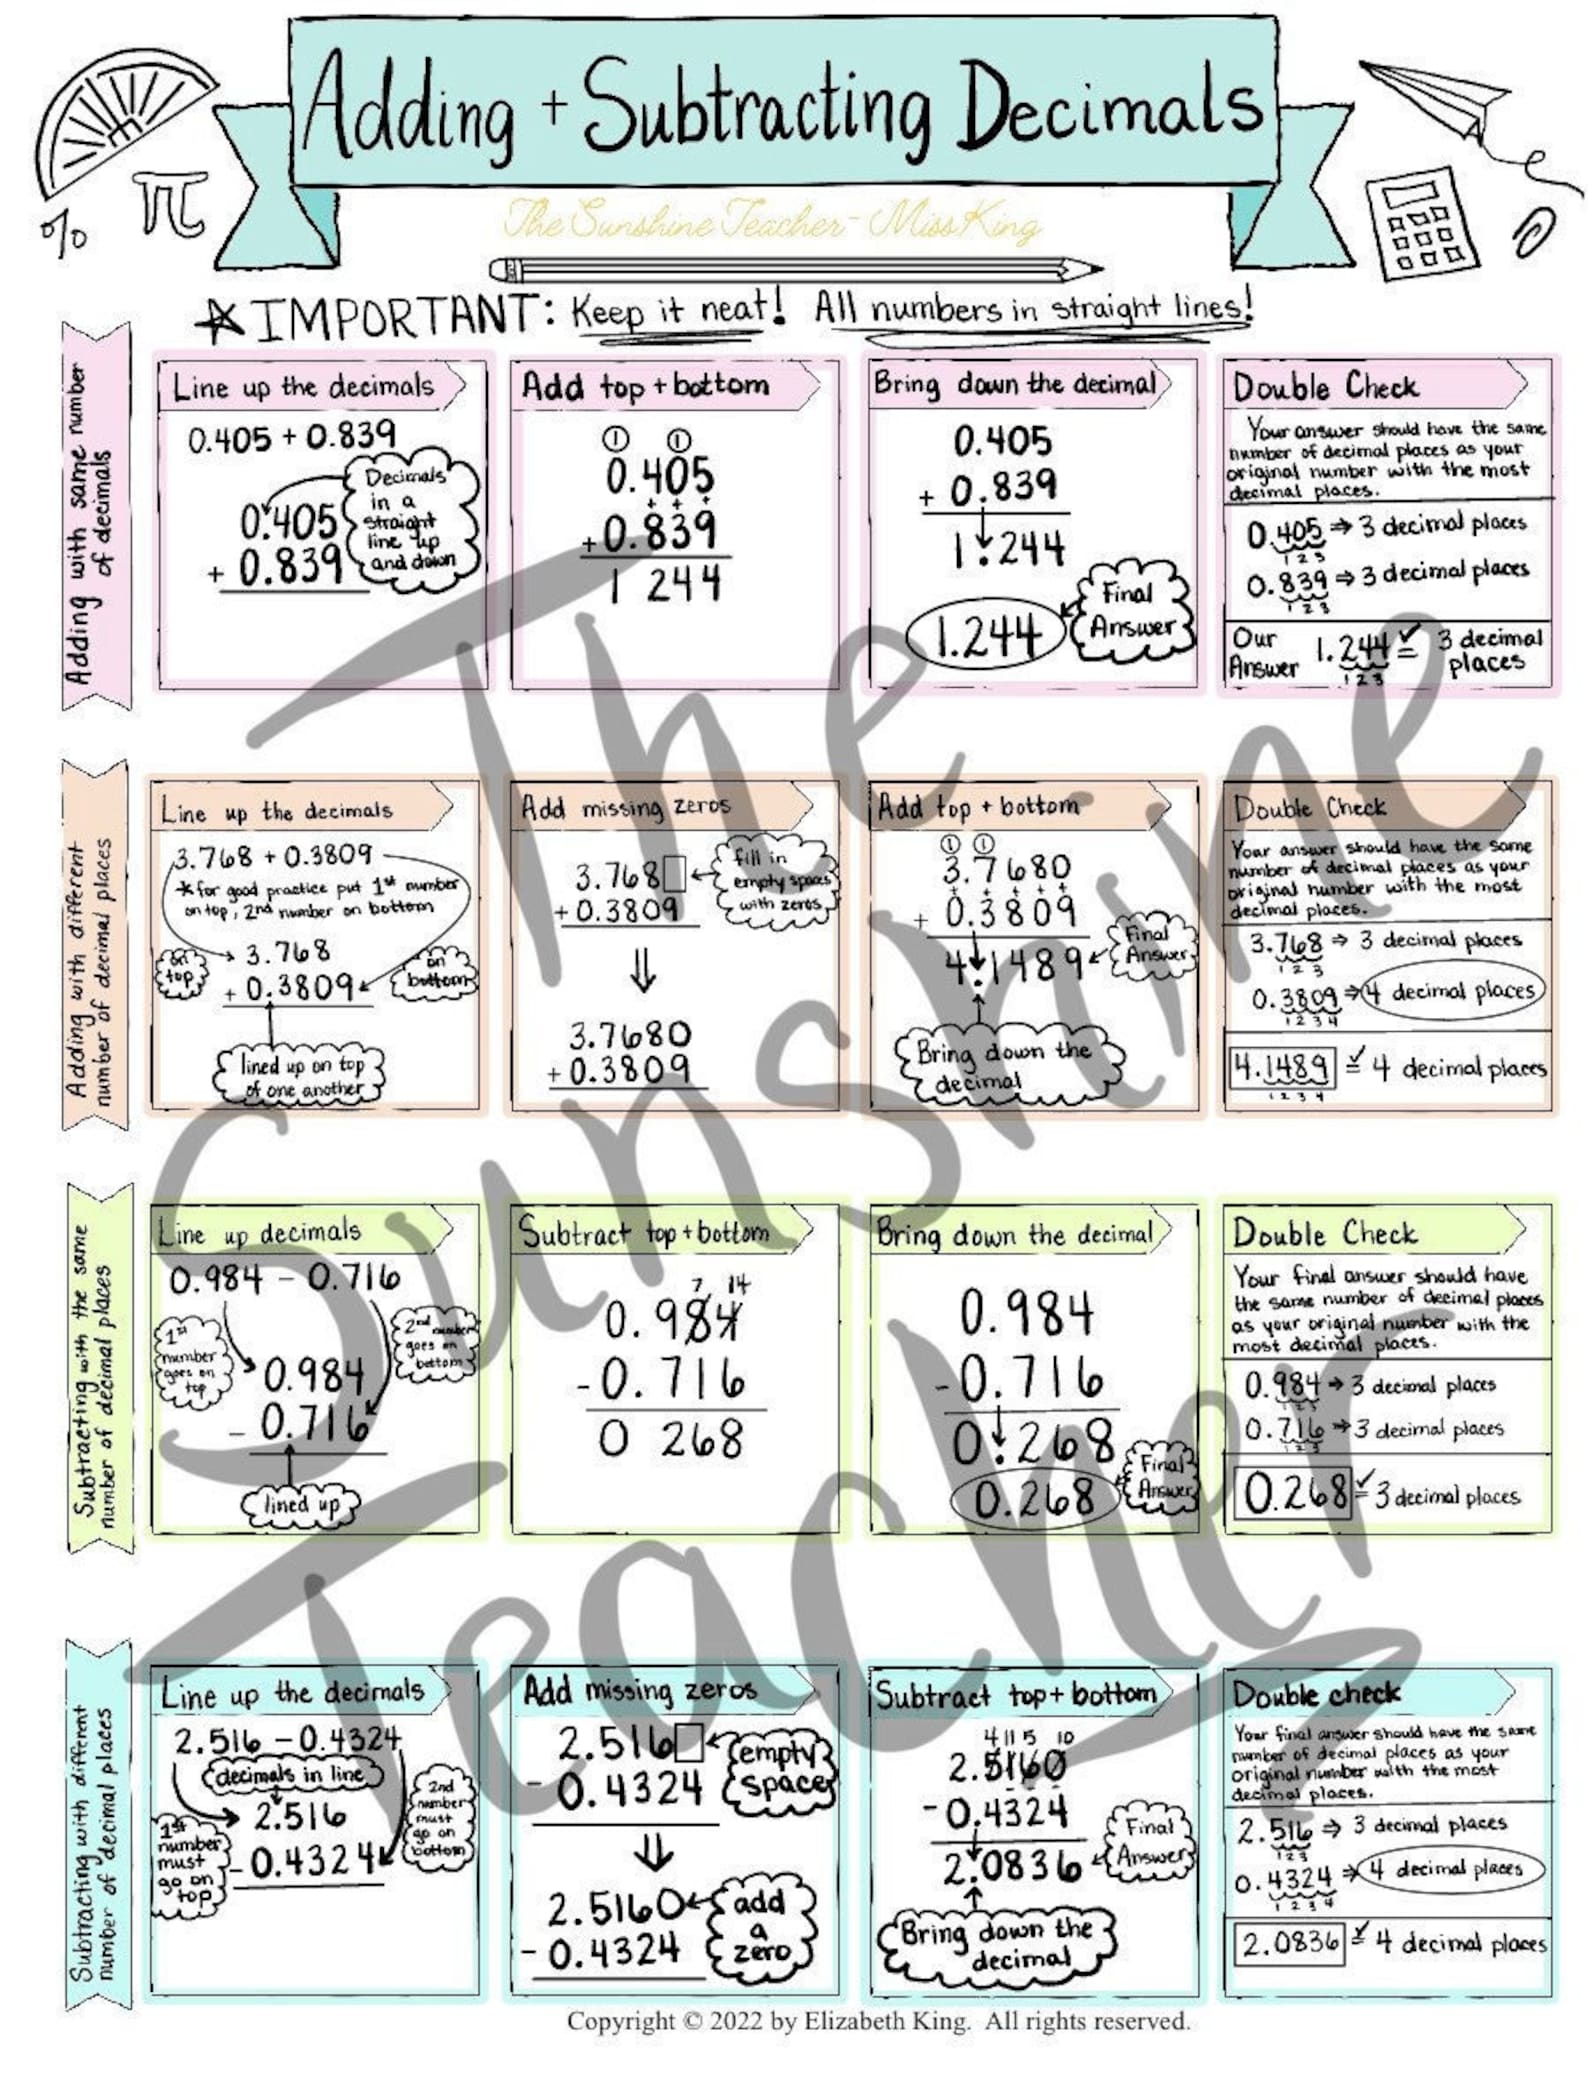 Adding + Subtracting Decimals
%
π
The Sunshine Teacher - Miss King
IMPORTANT: Keep it neat! All numbers in straight lines!
Adding with same number
of decimals
Line up the decimals
0.405 + 0.839
Decimals
in a
straight
line up
and down
0.405
+ 0.839
Add top + bottom
1 1
0.405
+ + +
+0.839
1 244
Bring down the decimal
0.405
+ 0.839
1.244
1.244
Final
Answer
Double Check
Your answer should have the same
number of decimal places as your
original number with the most
decimal places.
0.405 ⇒ 3 decimal places
1 2 3
0.839 ⇒ 3 decimal places
1 2 3
Our
Answer
1.244
1 2 3
3 decimal
places
Adding with different
number of decimal places
Line up the decimals
3.768 + 0.3809
*for good practice put 1st number
on top, 2nd number on bottom
on
top
3.768
+ 0.3809
on
bottom
lined up on top
of one another
Add missing zeros
3.768
+ 0.3809
fill in
empty spaces
with zeros
3.7680
+ 0.3809
Add top + bottom
1 1
3.7680
+ + + + +
+ 0.3809
4.1489
Final
Answer
Bring down the
decimal
Double Check
Your answer should have the same
number of decimal places as your
original number with the most
decimal places.
3.768 ⇒ 3 decimal places
1 2 3
0.3809 ⇒ 4 decimal places
1 2 3 4
4.1489 4 decimal places
1 2 3 4
Subtracting with the same
number of decimal places
Line up decimals
0.984 - 0.716
1st
number
goes on
top
2nd number
goes on
bottom
0.984
- 0.716
lined up
Subtract top + bottom
7 14
0.984
- 0.716
0 268
Bring down the decimal
0.984
- 0.716
0.268
0.268
Final
Answer
Double Check
Your final answer should have
the same number of decimal places
as your original number with the
most decimal places.
0.984 → 3 decimal places
1 2 3
0.716 ⇒ 3 decimal places
1 2 3
0.268 3 decimal places
Subtracting with different
number of decimal places
Line up the decimals
2.516 - 0.4324
decimals in line
1st
number
must
go on
top
2nd
number
must
go on
bottom
2.516
- 0.4324
Add missing zeros
2.516
- 0.4324
empty
space
2.5160
- 0.4324
add
a
zero
Subtract top + bottom
4 11 5 10
2.5160
- 0.4324
2.0836
Final
Answer
Bring down the
decimal
Double check
Your final answer should have the same
number of decimal places as your
original number with the most
decimal places.
2.516 ⇒ 3 decimal places
1 2 3
0.4324 ⇒ 4 decimal places
1 2 3 4
2.0836 4 decimal places
The
Sunshine
Teacher
Copyright © 2022 by Elizabeth King. All rights reserved.